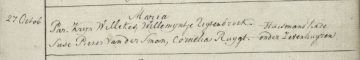 27 Octob Maria
Par. Krijn Willekes, Willemyntje Uytenbroek. Huismans kade
Susc Pieter van der Sman, Cornelia Kuygt. onder Zevenhuysen